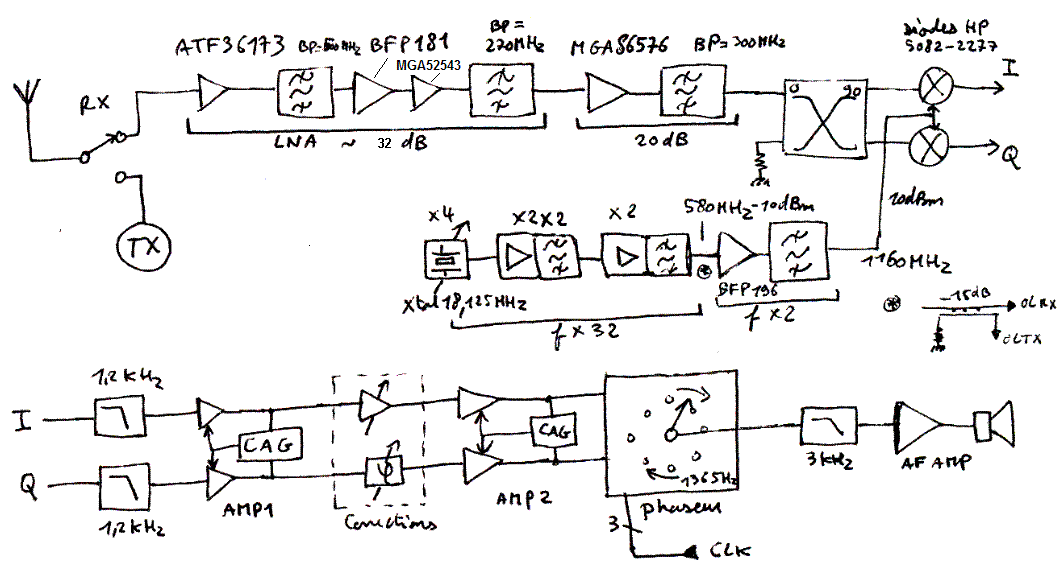 ATF36173
BP=500MHz
BFP181
MGA52543
BP=
270MHz
MGA86576
BP=300MHz
diodes HP
5082-2277
RX
LNA ~ 32 dB
20dB
0
90
I
Q
TX
x4
x2
x2
x2
580MHz-10dBm
10dBm
1160MHz
Xtal 18,125MHz
BFP196
f x 32
f x 2
-15dB
OLRX
OLTX
1,2kHz
I
CAG
CAG
1365Hz
3kHz
AF AMP
Q
φ
1,2kHz
AMP1
Corrections
AMP2
phaseur
3
CLK